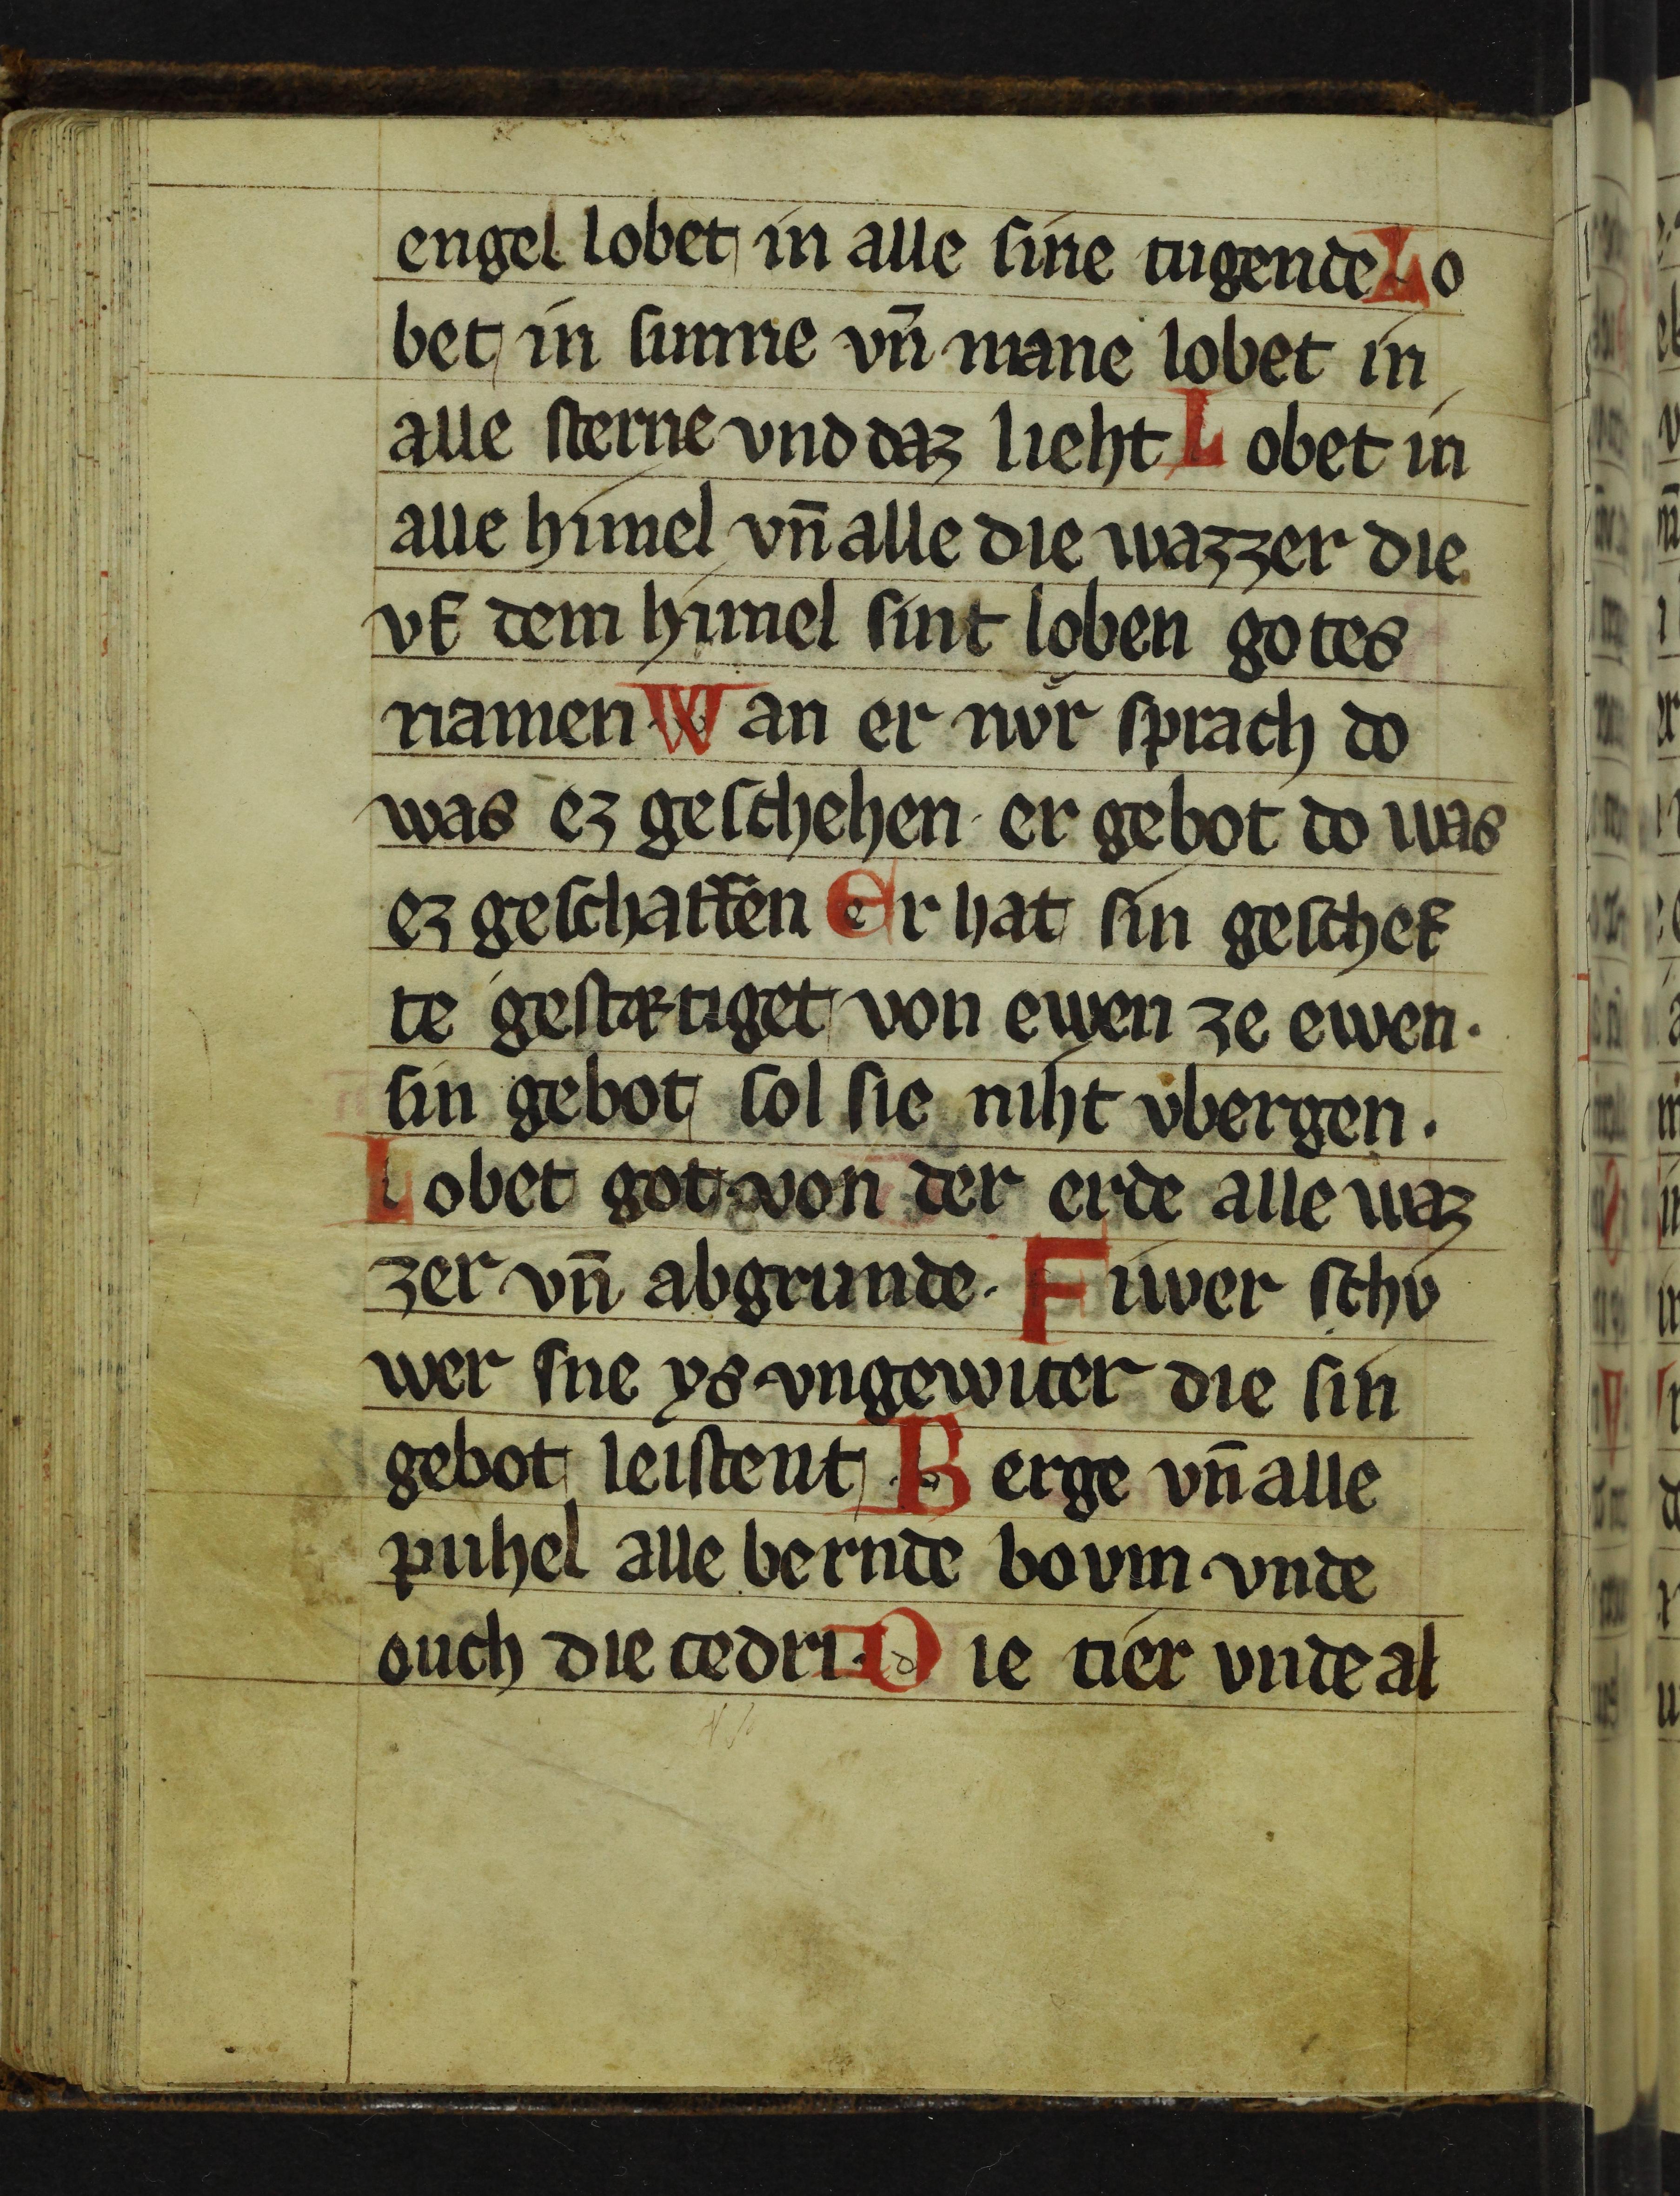 engel lobet in alle sine tugende Lo
bet in sunne vn̄ mane lobet in
alle sterne vnd daz lieht Lobet in
alle himel vn̄ alle die wazzer die
vf dem himel sint loben gotes
namen Wan er nvͦr sprach do
was ez geschehen · er gebot do was
ez geschaffen Er hat sin geschef
te gestætiget von ewen ze ewen ·
sin gebot sol sie niht vbergen .
Lobet got von der erde alle waz
zer vn̄ abgrunde · Fiwer schv
wer sne ys vngewiter die sin
gebot leistent Berge vn̄ alle
puhel alle bernde bovm vnde
ouch die cedri · Die tier vnde al